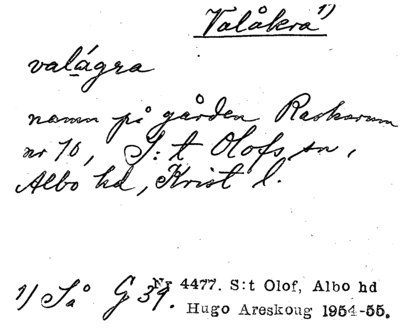 Valåkra 1)
valágra
namn på gården Raskarum
nr 10, S:t Olofs sn,
Albo hd, Krist l.
1) Så G 39.
Nr 4477. S:t Olof, Albo hd
Hugo Areskoug 1954-55.